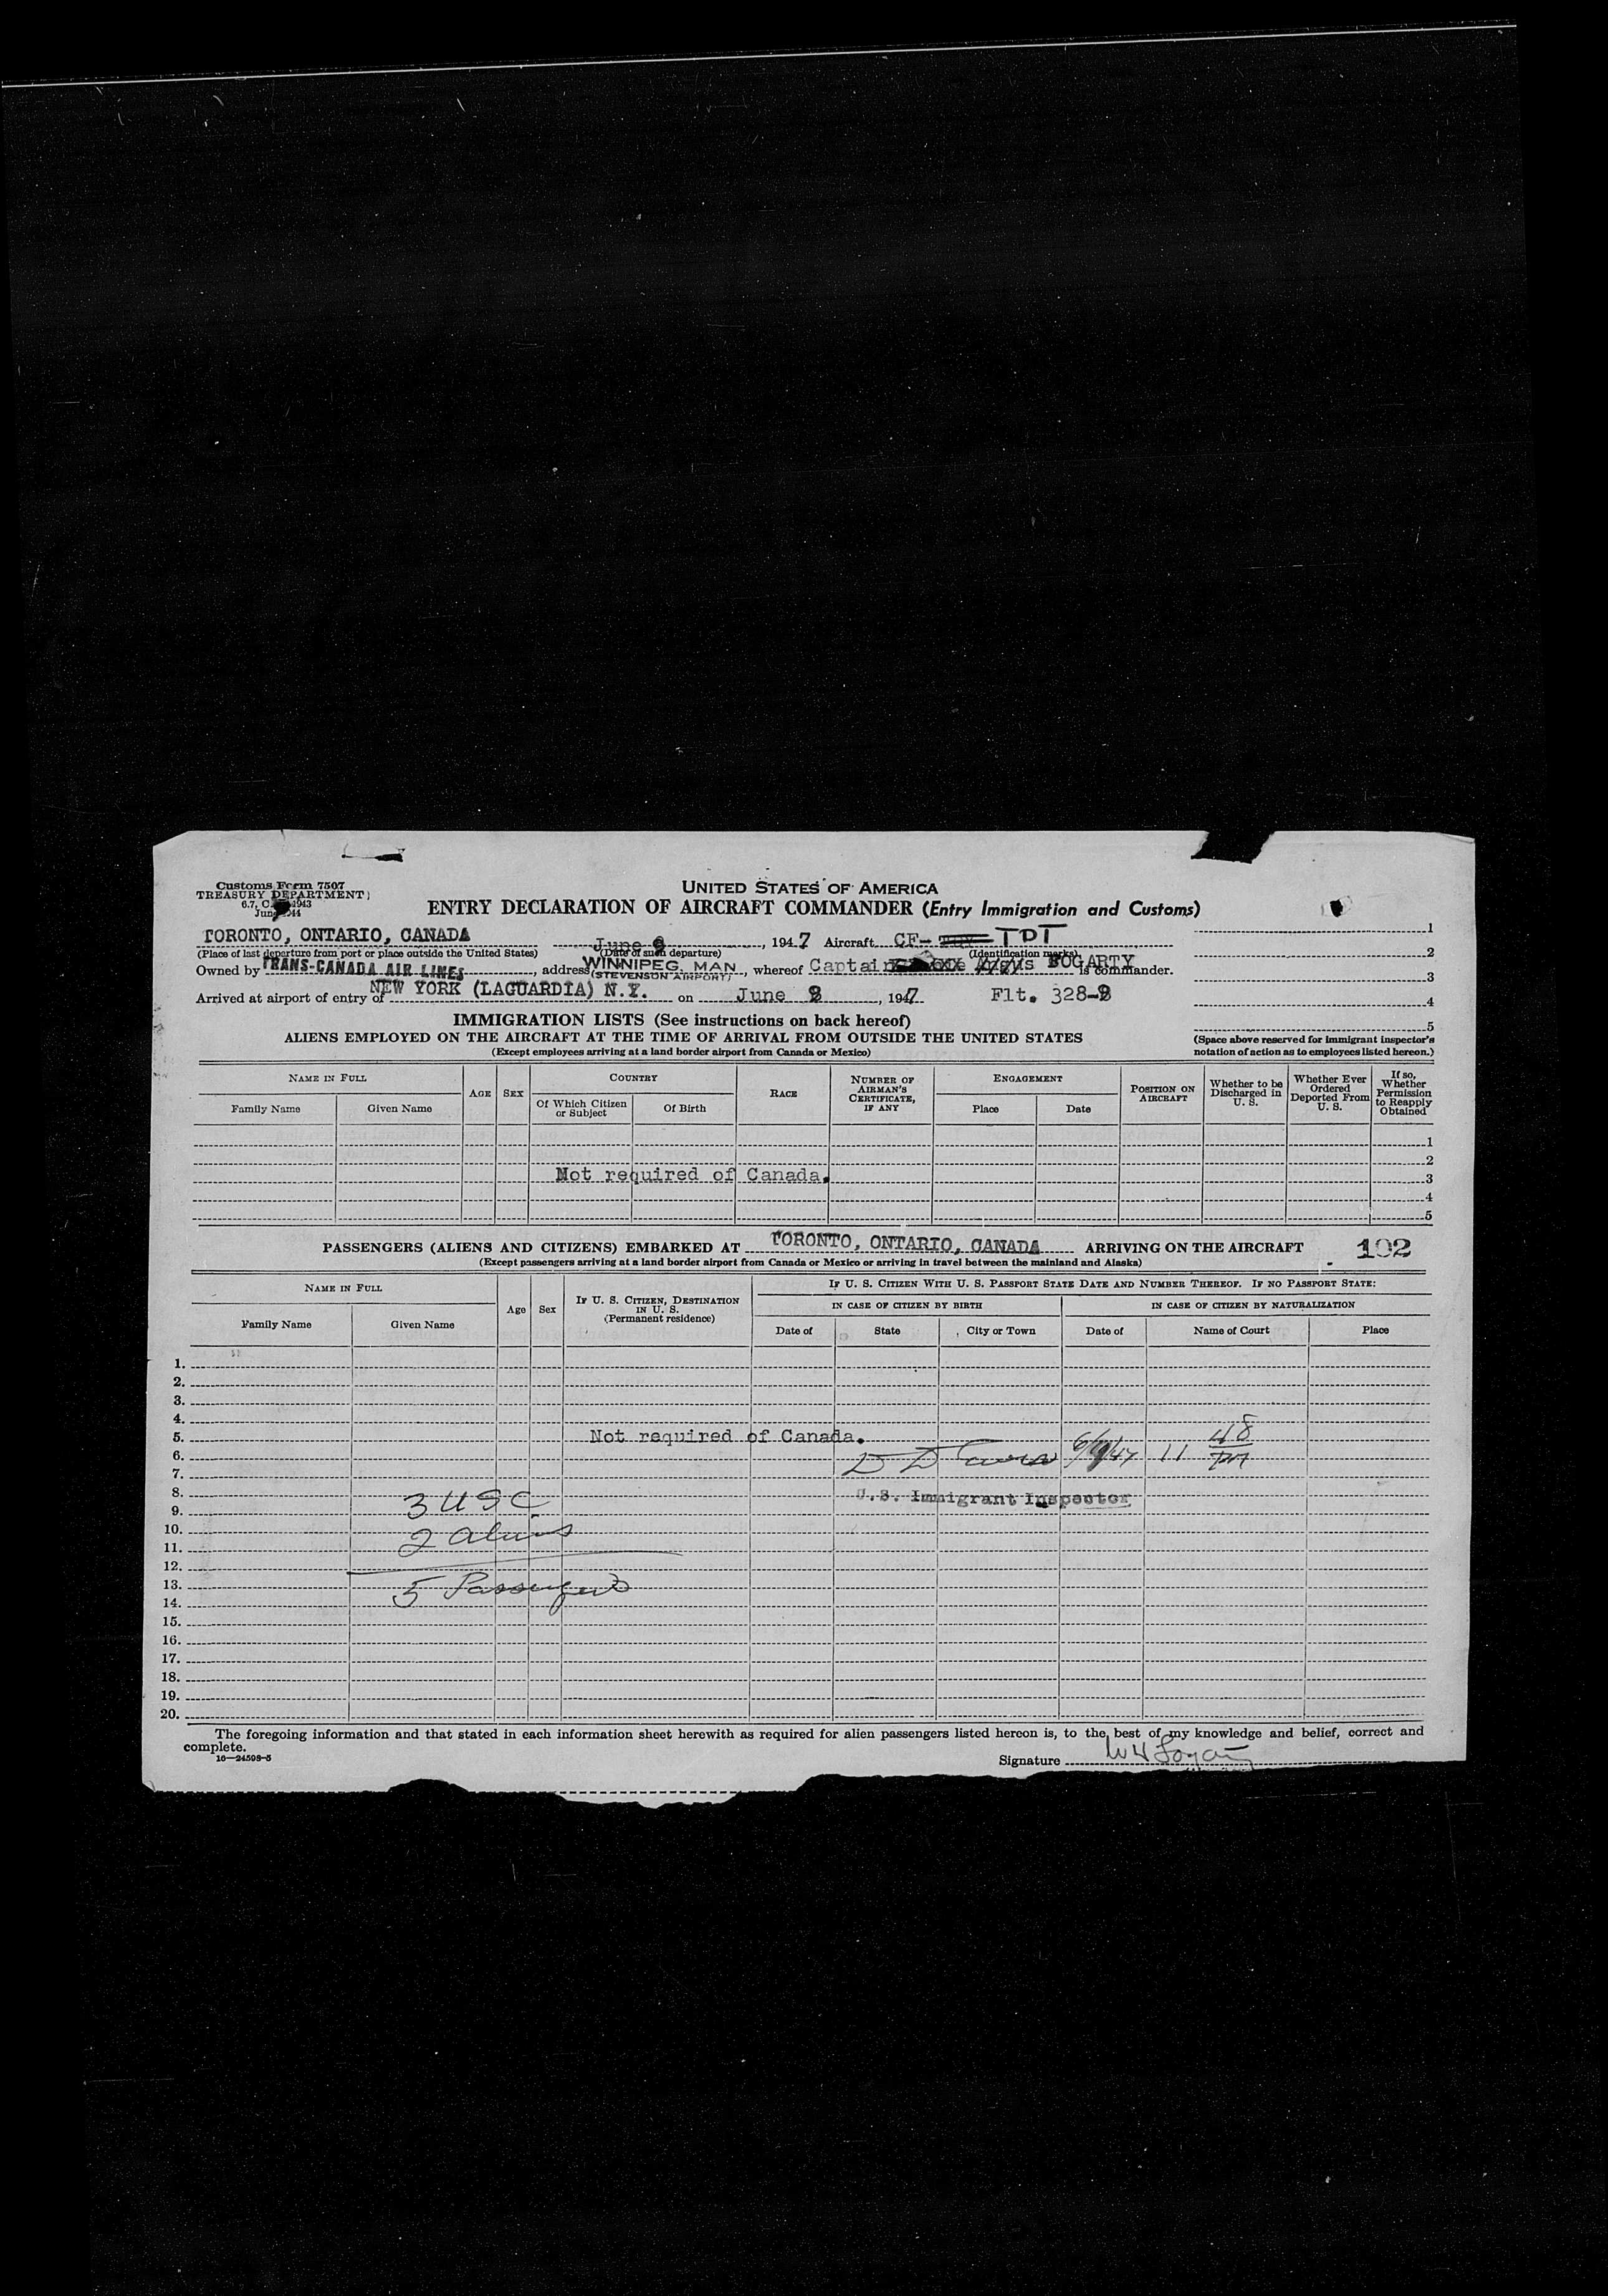 Customs Form 7507
TREASURY DEPARTMENT
UNITED STATES OF AMERICA
ENTRY DECLARATION OF AIRCRAFT COMMANDER (Entry Immigration and Customs)
TORONTO, ONTARIO, CANADA June , 1947 Aircraft CF- TDT
(Place of last departure from port or place outside the United States) (Date of such departure) (Identification marks)
Owned by TRANS-CANADA AIR LINES, address WINNIPEG, MAN. (STEVENSON AIRPORT), whereof Captain FOGARTY is commander.
Arrived at airport of entry of NEW YORK (LAGUARDIA) N.Y. on June , 1947 Flt. 328-
1
2
3
4
5
(Space above reserved for immigrant inspector's notation of action as to employees listed hereon.)
IMMIGRATION LISTS (See instructions on back hereof)
ALIENS EMPLOYED ON THE AIRCRAFT AT THE TIME OF ARRIVAL FROM OUTSIDE THE UNITED STATES
(Except employees arriving at a land border airport from Canada or Mexico)
NAME IN FULL
Family Name Given Name
AGE SEX
COUNTRY
Of Which Citizen or Subject Of Birth
RACE
NUMBER OF AIRMAN'S CERTIFICATE, IF ANY
ENGAGEMENT
Place Date
POSITION ON AIRCRAFT
Whether to be Discharged in U. S.
Whether Ever Ordered Deported From U. S.
If so, Whether Permission to Reapply Obtained
1
2
Not required of Canada.
3
4
5
PASSENGERS (ALIENS AND CITIZENS) EMBARKED AT TORONTO, ONTARIO, CANADA ARRIVING ON THE AIRCRAFT 102
(Except passengers arriving at a land border airport from Canada or Mexico or arriving in travel between the mainland and Alaska)
NAME IN FULL
Family Name Given Name
Age Sex
IF U. S. CITIZEN, DESTINATION IN U. S.
(Permanent residence)
IF U. S. CITIZEN WITH U. S. PASSPORT STATE DATE AND NUMBER THEREOF. IF NO PASSPORT STATE:
IN CASE OF CITIZEN BY BIRTH IN CASE OF CITIZEN BY NATURALIZATION
Date of State City or Town Date of Name of Court Place
1.
2.
3.
4.
5. Not required of Canada.
6. 11 48 PM
7.
8. U.S. Immigrant Inspector
9. 3 USC
10.
11. 2 aliens
12.
13. 5 Passengers
14.
15.
16.
17.
18.
19.
20.
The foregoing information and that stated in each information sheet herewith as required for alien passengers listed hereon is, to the best of my knowledge and belief, correct and
complete.
16—24598-5
Signature W H Fogarty